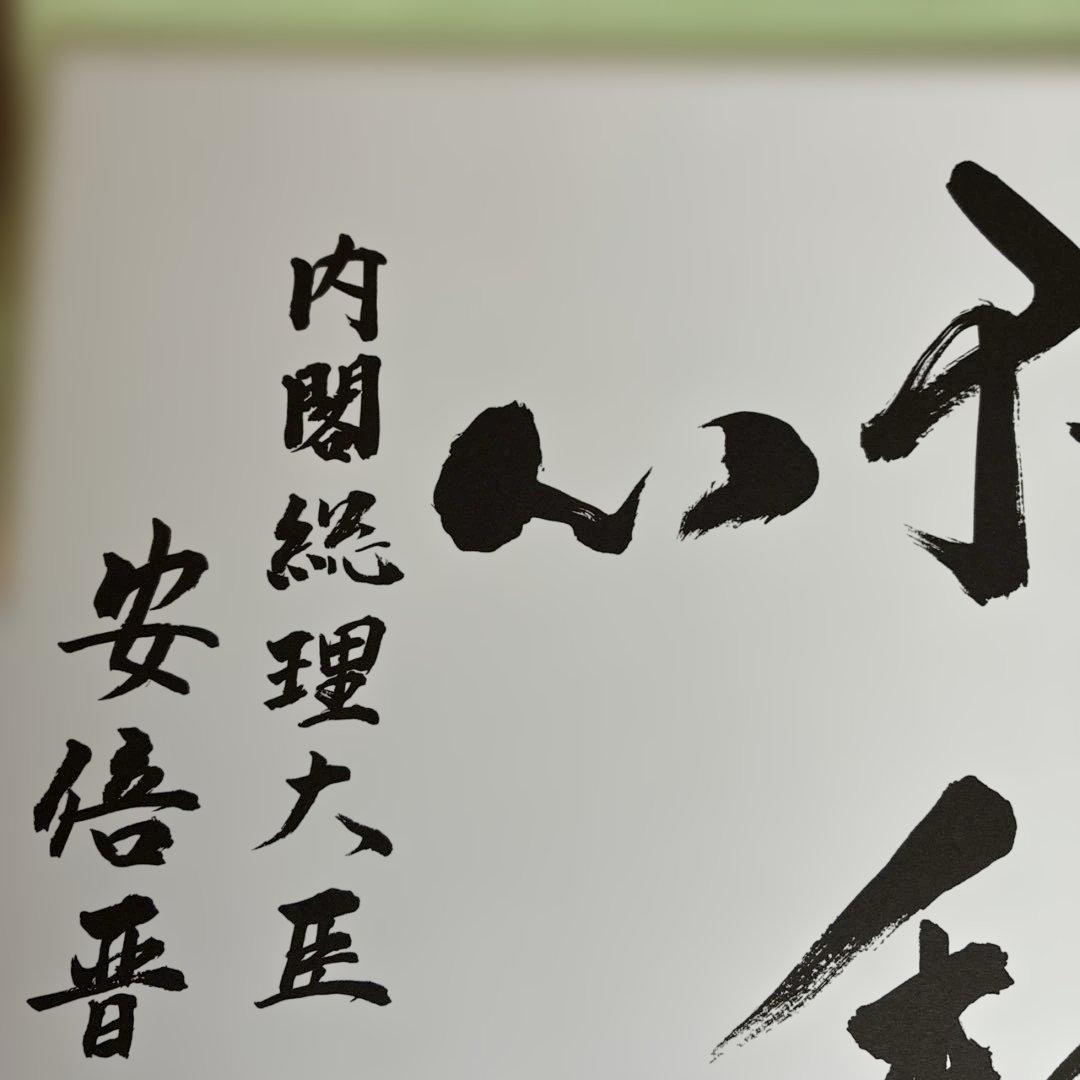 心
内閣総理大臣
安倍晋